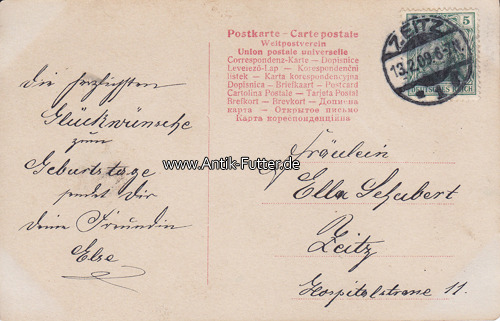 Postkarte – Carte postale
Weltpostverein
Union postale universelle
Correspondenz-Karte – Dopisnice
Levelező-Lap – Korespondenční
lístek – Karta korespondencyjna
Dopisnica – Briefkaart – Postcard
Cartolina Postale – Tarjeta Postal
Brefkort – Brevkort – Дописна
карта – Открытое письмо
Карта кореспондеционна
ZEITZ
13.2.09.6-7N.
5
DEUTSCHES REICH
die herzlichsten
Glückwünsche
zum
Geburtstage
sendet dir
deine Freundin
Else
www.Antik-Futter.de
Fräulein
Ella Schubert
Zeitz
Hospitalstrasse 11.